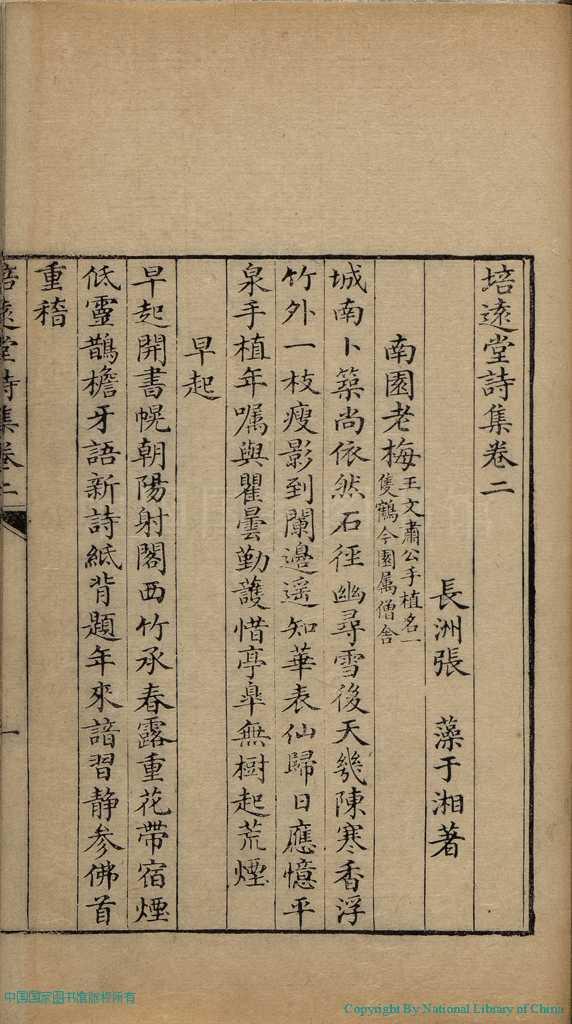 培遠堂詩集卷二
長洲張　藻于湘著
南園老梅王文肅公手植名一
隻鶴今園属僧舍
城南卜築尚依然石徑幽尋雪後天幾陳寒香浮
竹外一枝瘦影到闌邊遥知華表仙歸日應憶平
泉手植年嘱與瞿曇勤護惜亭臯無樹起荒煙
早起
早起開書幌朝陽射閣西竹承春露重花帶宿煙
低靈鵲檐牙語新詩紙背題年來諳習静参佛首
重稽
培遠堂詩集卷二
一
中国国家图书馆版权所有
Copyright By National Library of China